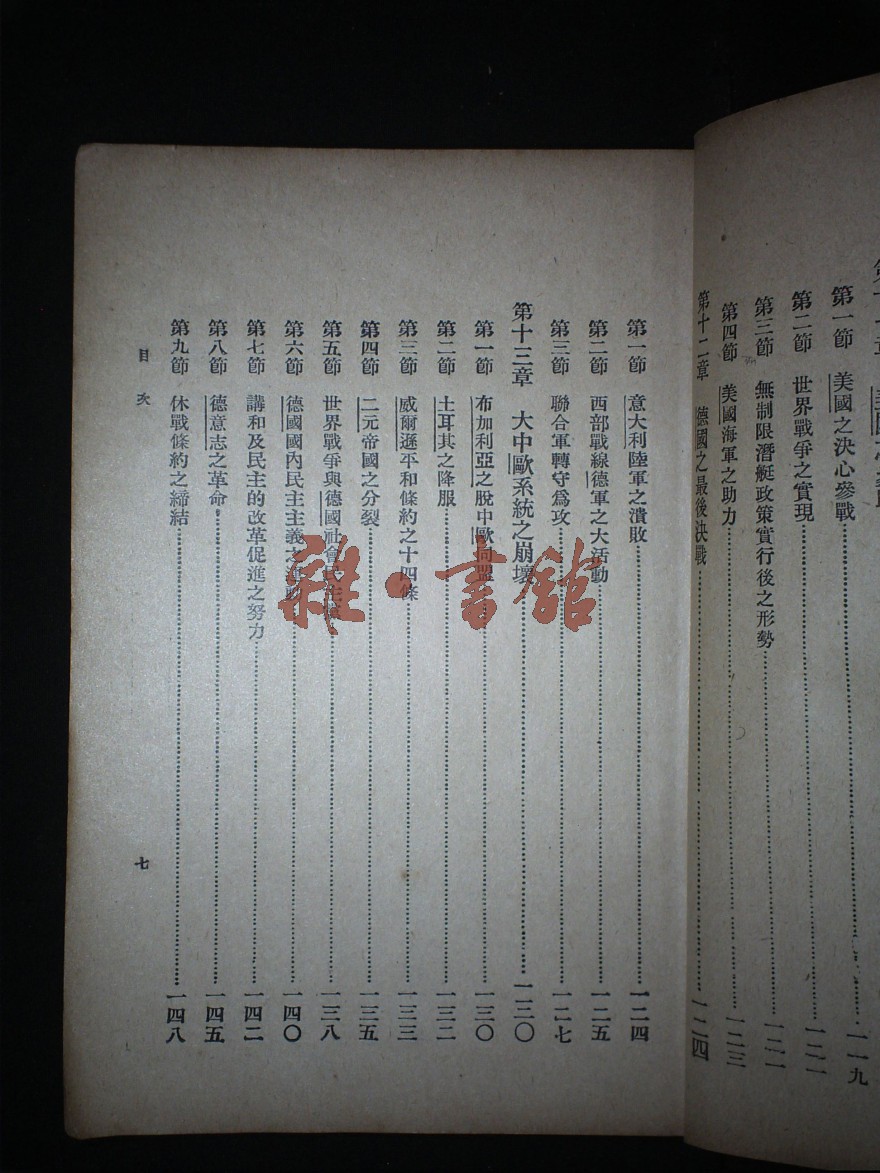 第一節 美國之決心參戰 一一九
第二節 世界戰爭之實現 一二一
第三節 無制限潛艇政策實行後之形勢 一二一
第四節 美國海軍之助力 一二三
第十二章 德國之最後決戰 一二四
第一節 意大利陸軍之潰敗 一二四
第二節 西部戰線德軍之大活動 一二五
第三節 聯合軍轉守為攻 一二七
第十三章 大中歐系統之崩壞 一三〇
第一節 布加利亞之脫中歐同盟 一三〇
第二節 土耳其之降服 一三二
第三節 威爾遜平和條約之十四條 一三三
第四節 二元帝國之分裂 一三五
第五節 世界戰爭與德國社會民主黨 一三八
第六節 德國國內民主主義之 一四〇
第七節 講和及民主的改革促進之努力 一四二
第八節 德意志之革命 一四五
第九節 休戰條約之締結 一四八
目次
七
雜·書館